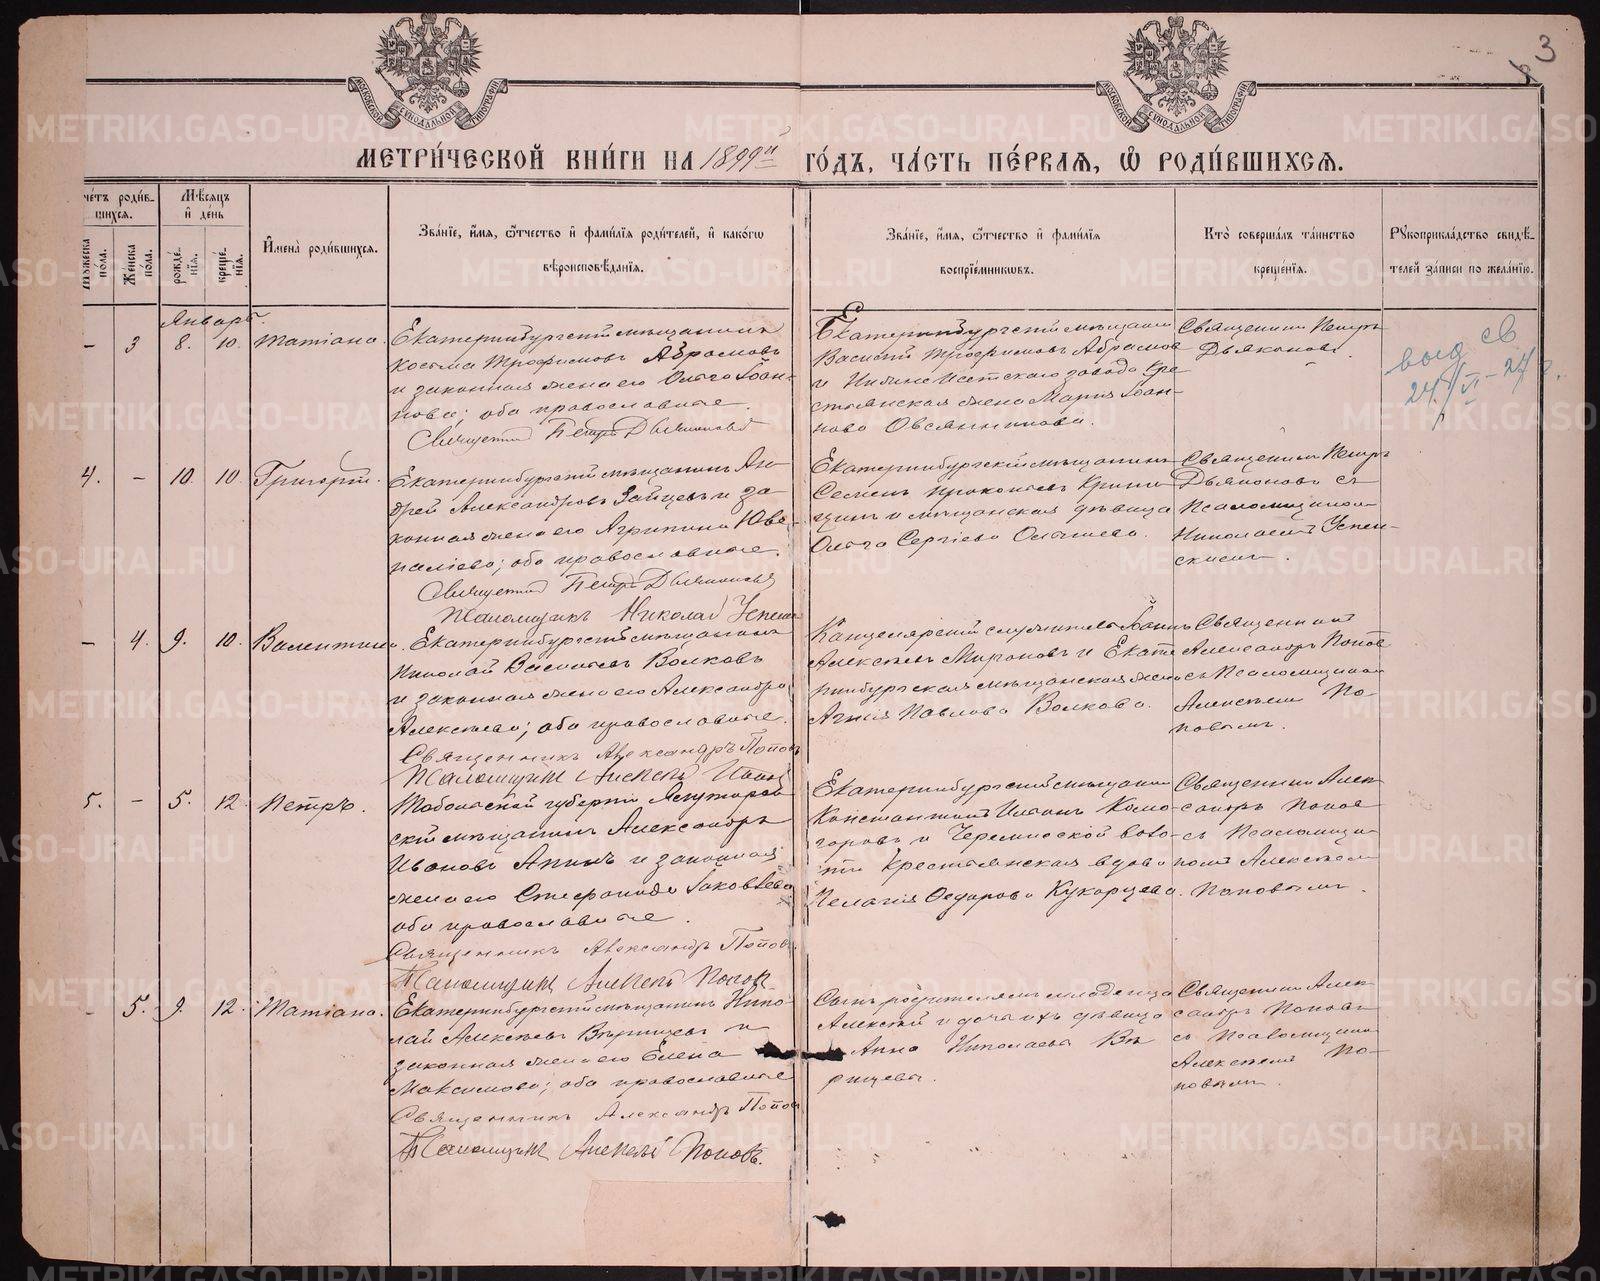 3
МОСКОВСКОЙ СѴНОДАЛЬНОЙ ТИПОГРАФІИ
МОСКОВСКОЙ СѴНОДАЛЬНОЙ ТИПОГРАФІИ
МЕТРИ́ЧЕСКОЙ КНИ́ГИ НА 1899й ГО́ДЪ, ЧА́СТЬ ПЕ́РВАЯ, Ѿ РОДИ́ВШИХСЯ.
че́тъ роди́в-
шихся.
Мѣ́сяцъ
и҆ де́нь
Мꙋжеска по́ла.
Же́нска по́ла.
рожде́-
нїя.
креще́-
нїя.
И҆мена̀ роди́вшихся.
Зва́нїе, и҆́мя, ѻ҆́тчество и҆ фами́лїя роди́телей, и҆ како́гѡ
вѣроисповѣ́данїя.
Зва́нїе, и҆́мя, ѻ҆́тчество и҆ фами́лїя
воспрїе́мниковъ.
Кто̀ соверша́лъ та́инство
креще́нїя.
Рꙋкоприкла́дство свидѣ́-
телей за́писи по жела́нїю.
Январь.
- 3 8. 10. Татіана.
Екатеринбургскій мѣщанинъ
Косьма Трофимовъ Абрамовъ
и законная жена его Ольга Іоан-
нова; оба православные.
Священникъ Петръ Дьяконовъ
Екатеринбургскій мѣщанин
Василій Трофимовъ Абрамов
и Нижне Исетскаго завода кре-
стьянская жена Марія Іоан-
нова Овсянникова.
Священник Петръ
Дьяконовъ.
выд св
24/VI-24 г.
4. - 10. 10. Григорій.
Екатеринбургскій мѣщанинъ Ан-
дрей Александровъ Зайцевъ и за-
конная жена его Агрипина Юве-
наліева; оба православные.
Священникъ Петръ Дьяконовъ
Псаломщикъ Николай Успенск
Екатеринбургскій мѣщанинъ
Семенъ Прокопьевъ
и мѣщанская дѣвица
Ольга Сергіева
Священник Петръ
Дьяконовъ съ
Псаломщикомъ
Николаемъ Успен-
скимъ.
- 4. 9. 10. Валентина.
Екатеринбургскій мѣщанинъ
Николай Васильевъ Волковъ
и законная жена его Александра
Алексѣева; оба православные.
Священникъ Александръ Попов
Псаломщикъ Алексѣй Попов
Канцелярскій служитель Іоаннъ
Алексѣевъ Мироновъ и Екате
ринбургская мѣщанская жена
Агнія Павлова Волкова.
Священникъ
Александръ Попов
съ Псаломщиком
Алексѣемъ По-
повымъ.
5. - 5. 12. Петръ.
Тобольской губерніи Ялуторов
скій мѣщанинъ Александръ
Ивановъ и законная
жена его Стефанида Іаковлева
оба православные.
Священникъ Александръ Попов.
Псаломщикъ Алексѣй Попов.
Екатеринбургскій мѣщанин
Константинъ
и воло-
сти крестьянская вдова
Пелагія Федорова Кухарцева.
Священник Алек
сандръ Попов
съ Псаломщи-
комъ Алексѣем
Поповымъ.
- 5. 9. 12. Татіана.
Екатеринбургскій мѣщанинъ Нико-
лай Алексѣевъ и
законная жена его Елена
Максимова; оба православные
Священникъ Александръ Попов
Псаломщикъ Алексѣй Поповъ.
Сынъ родителямъ младенца
Алексѣй и дочь ихъ дѣвица
Анна Николаева
Священник Алек
сандръ Поповъ
съ Псаломщиком
Алексѣемъ По-
повымъ.
METRIKI.GASO-URAL.RU